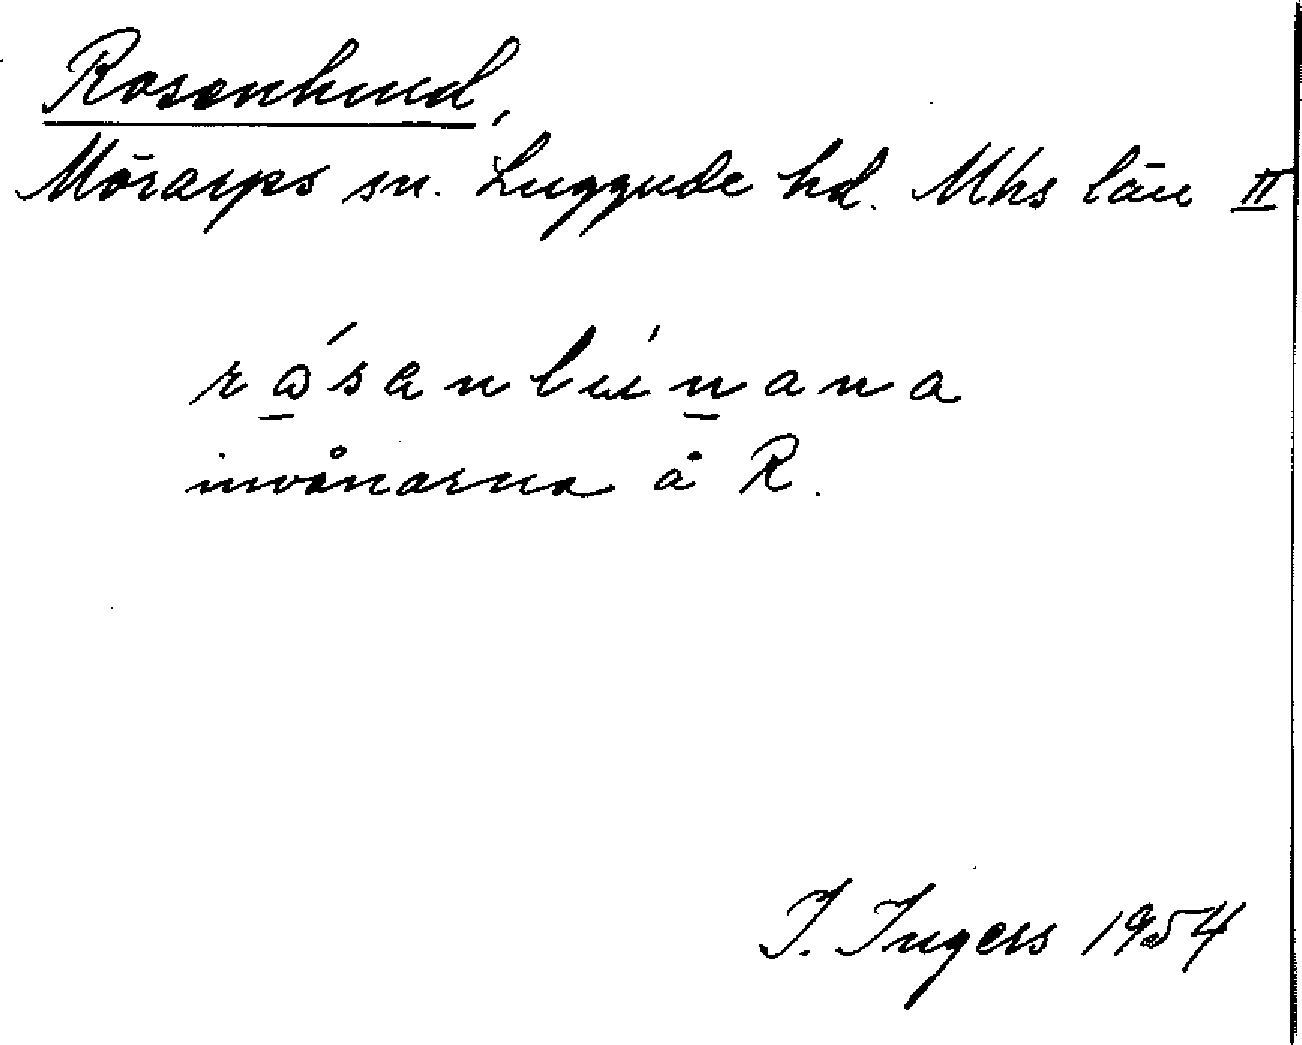 Rosenlund,
Mörarps sn. Luggude hd. Mhs län II
rósanlúnana
invånarna å R.
I. Ingers 1954